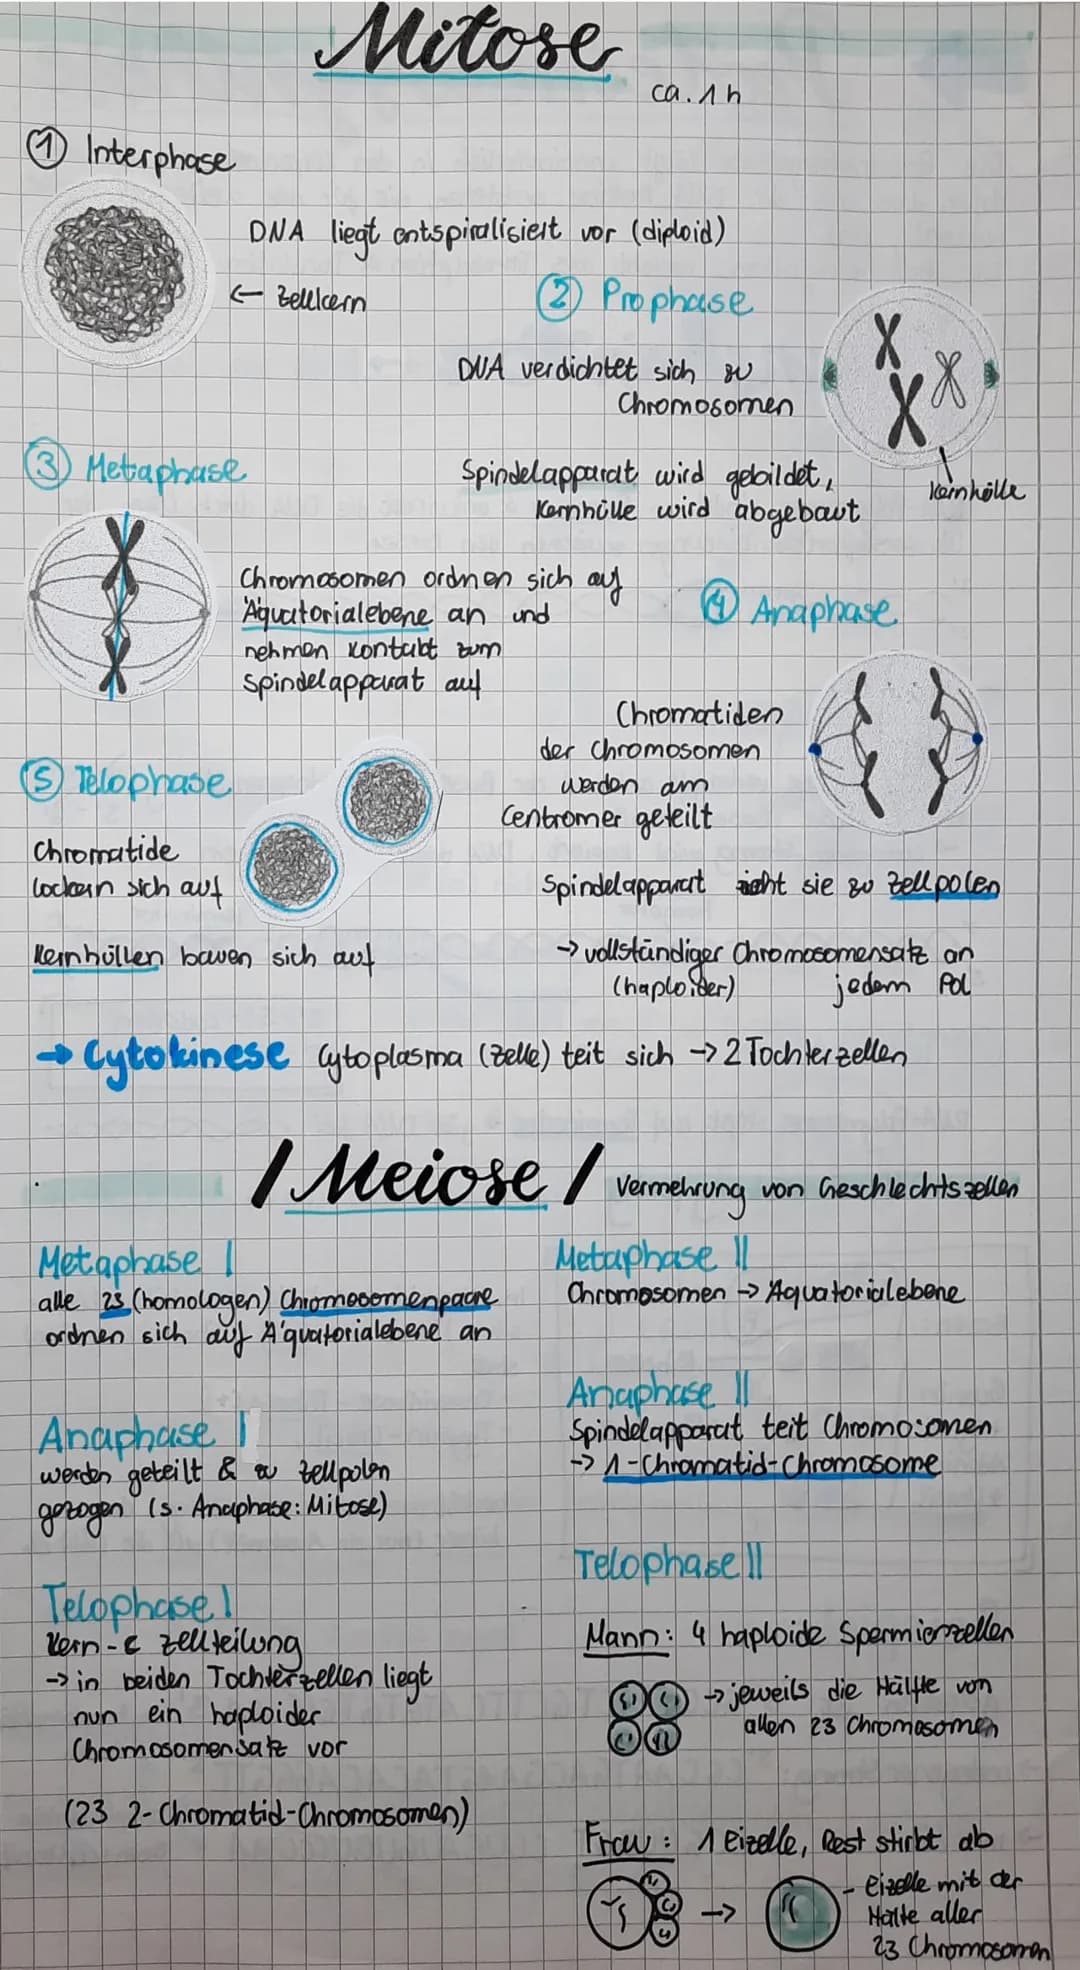 Mitose
ca. 1h
① Interphase
DNA liegt entspiralisiert vor (diploid)
← Zellkern
② Prophase
DNA verdichtet sich zu
Chromosomen
Spindelapparat wird gebildet,
Kernhülle wird abgebaut
Kernhülle
③ Metaphase
Chromosomen ordnen sich auf
Äquatorialebene an und
nehmen Kontakt zum
Spindelapparat auf
④ Anaphase
Chromatiden
der Chromosomen
werden am
Centromer geteilt
Spindelapparat zieht sie zu Zellpolen
→ vollständiger Chromosomensatz an
(haploider) jedem Pol
⑤ Telophase
Chromatide
lockern sich auf
Kernhüllen bauen sich auf
→ Cytokinese Cytoplasma (Zelle) teit sich → 2 Tochterzellen
/ Meiose / Vermehrung von Geschlechtszellen
Metaphase I
alle 23 (homologen) Chromosomenpaare
ordnen sich auf Äquatorialebene an
Anaphase I
werden geteilt & zu Zellpolen
gezogen (s. Anaphase: Mitose)
Telophase I
Kern- & Zellteilung
→ in beiden Tochterzellen liegt
nun ein haploider
Chromosomensatz vor
(23 2-Chromatid-Chromosomen)
Metaphase II
Chromosomen → Äquatorialebene
Anaphase II
Spindelapparat teit Chromosomen
→ 1-Chromatid-Chromosome
Telophase II
Mann: 4 haploide Spermienzellen
→ jeweils die Hälfte von
allen 23 Chromosomen
Frau: 1 Eizelle, Rest stirbt ab
→
- Eizelle mit der
Hälte aller
23 Chromosomen